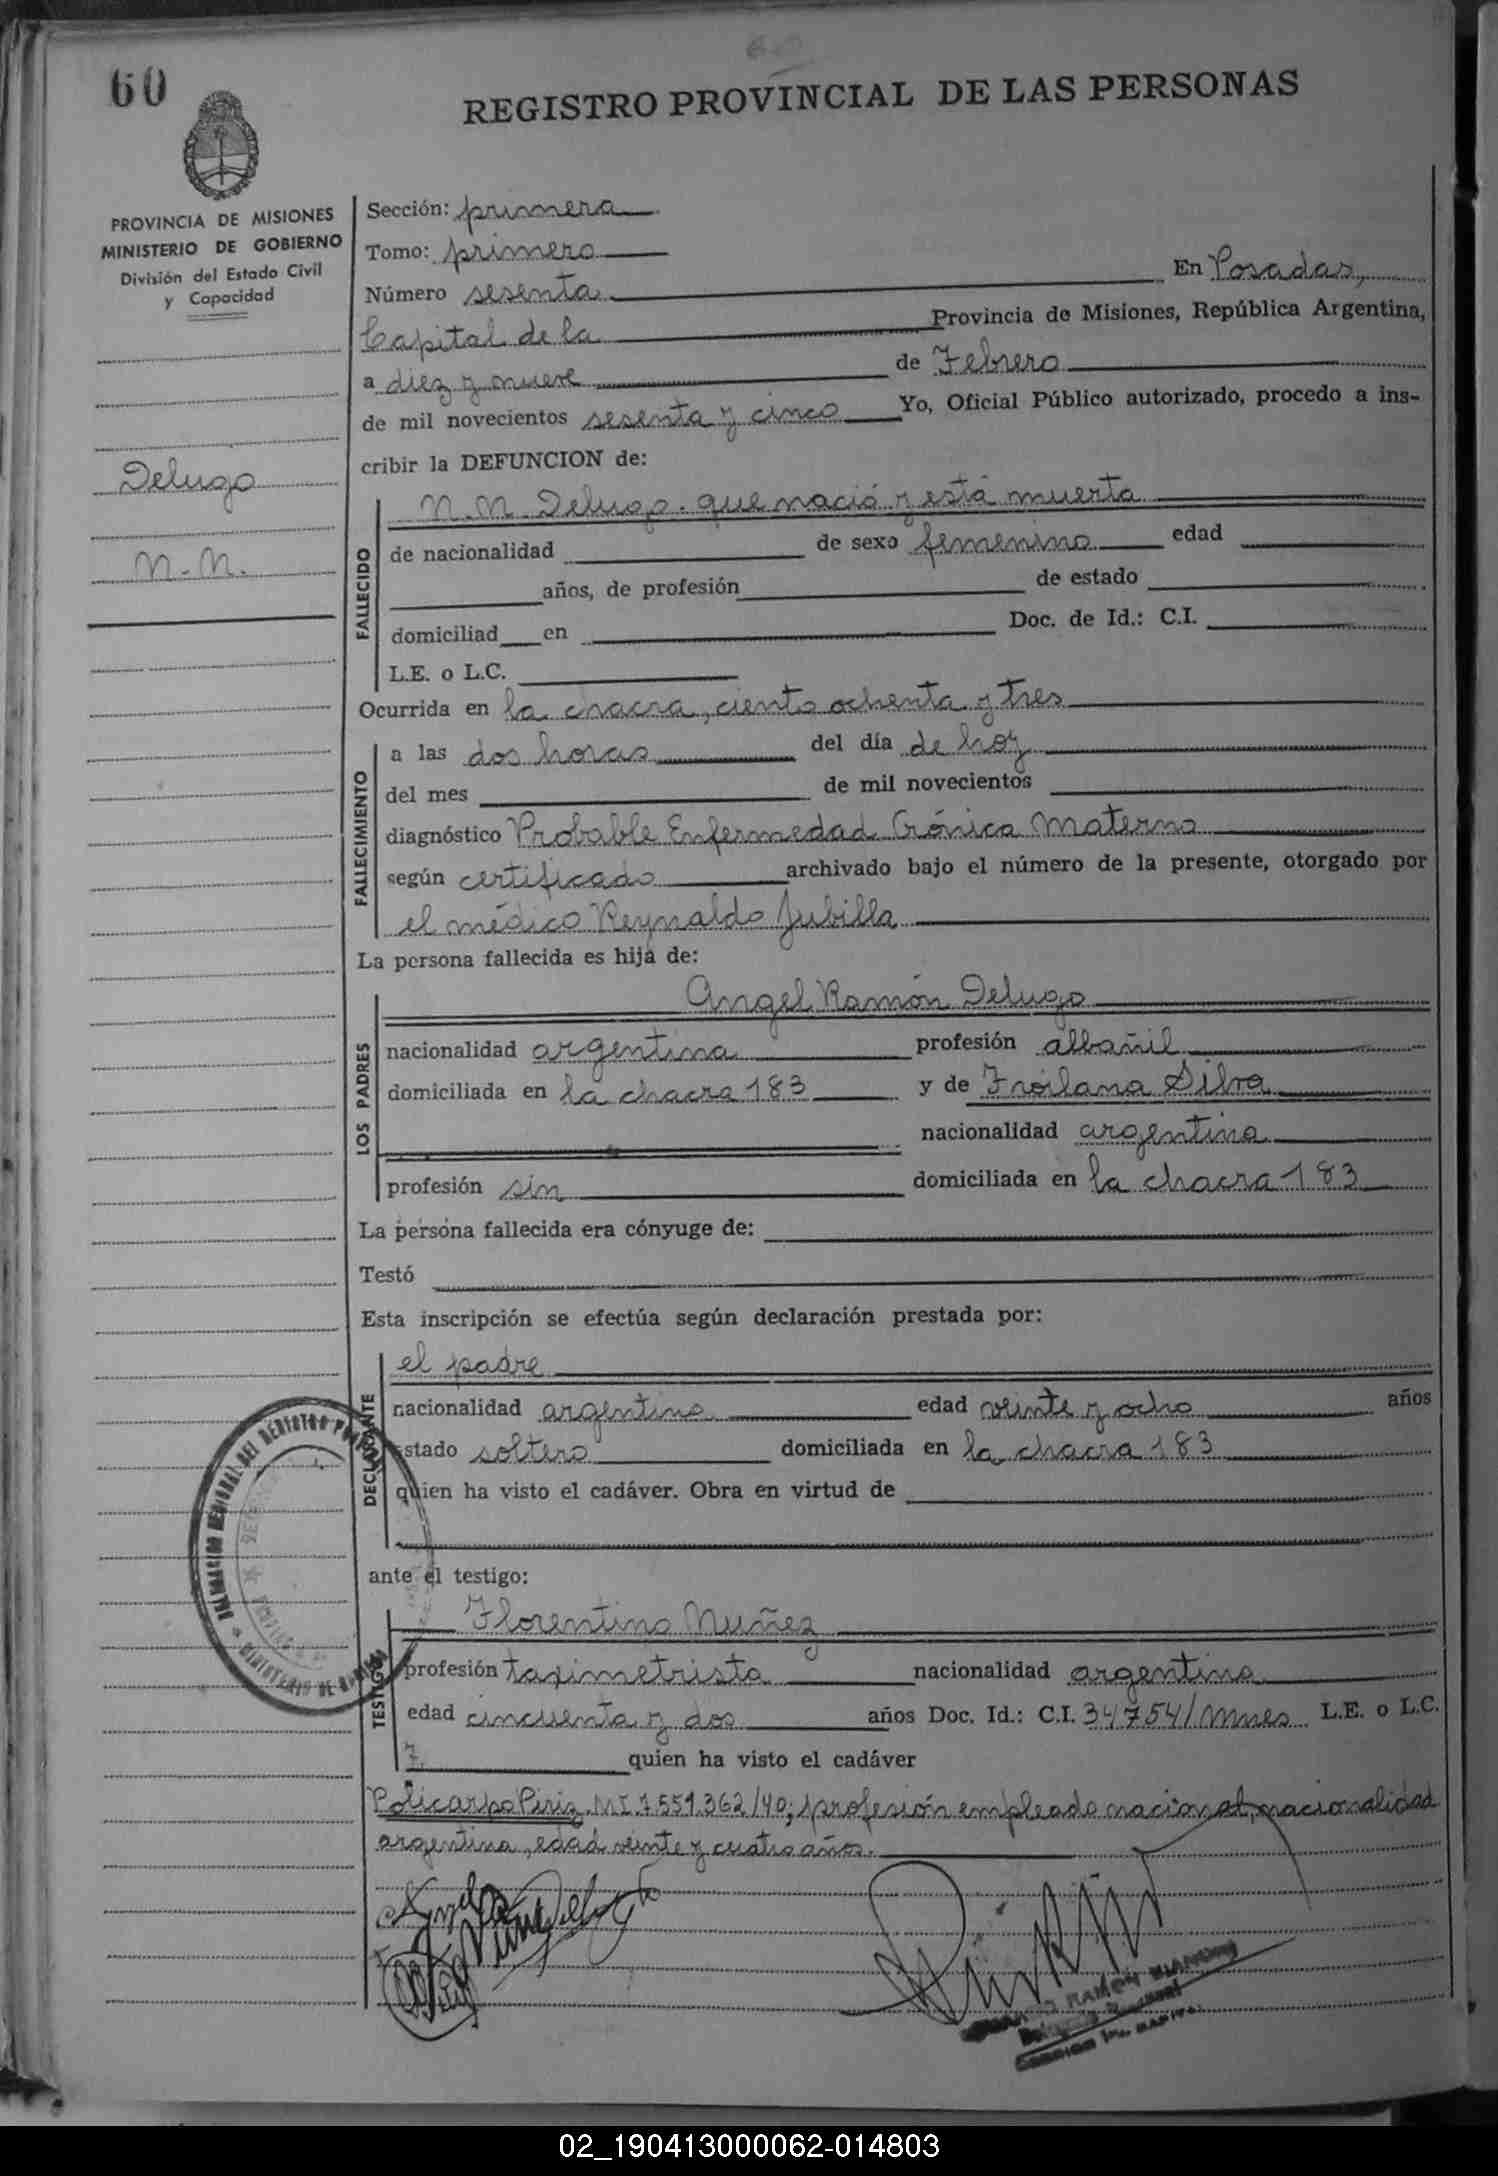 60
REGISTRO PROVINCIAL DE LAS PERSONAS
PROVINCIA DE MISIONES
MINISTERIO DE GOBIERNO
División del Estado Civil
y Capacidad
Delugo
N.N.
Sección: primera
Tomo: primero
Número sesenta En Posadas,
Capital de la Provincia de Misiones, República Argentina,
a diez y nueve de Febrero
de mil novecientos sesenta y cinco Yo, Oficial Público autorizado, procedo a ins-
cribir la DEFUNCION de:
FALLECIDO
N.N. Delugo. que nació y está muerta
de nacionalidad de sexo femenino edad
años, de profesión de estado
domiciliad en Doc. de Id.: C.I.
L.E. o L.C.
Ocurrida en la chacra, ciento ochenta y tres
FALLECIMIENTO
a las dos horas del día de hoy
del mes de mil novecientos
diagnóstico Probable Enfermedad Crónica Materna
según certificado archivado bajo el número de la presente, otorgado por
el médico Reynaldo Jubilla
La persona fallecida es hija de:
LOS PADRES
Angel Ramón Delugo
nacionalidad argentina profesión albañil
domiciliada en la chacra 183 y de Froilana Silva
nacionalidad argentina
profesión sin domiciliada en la chacra 183
La persona fallecida era cónyuge de:
Testó
Esta inscripción se efectúa según declaración prestada por:
DECLARANTE
el padre
nacionalidad argentina edad veinte y ocho años
estado soltero domiciliada en la chacra 183
quien ha visto el cadáver. Obra en virtud de
ante el testigo:
TESTIGO
Florentino Nuñez
profesión taximetrista nacionalidad argentina
edad cincuenta y dos años Doc. Id.: C.I. 34754/Mnes L.E. o L.C.
7. quien ha visto el cadáver
Policarpo Piriz. M.I. 7.559.362/40; profesión empleado nacional, nacionalidad
argentina, edad veinte y cuatro años.
RAMON
02_190413000062-014803